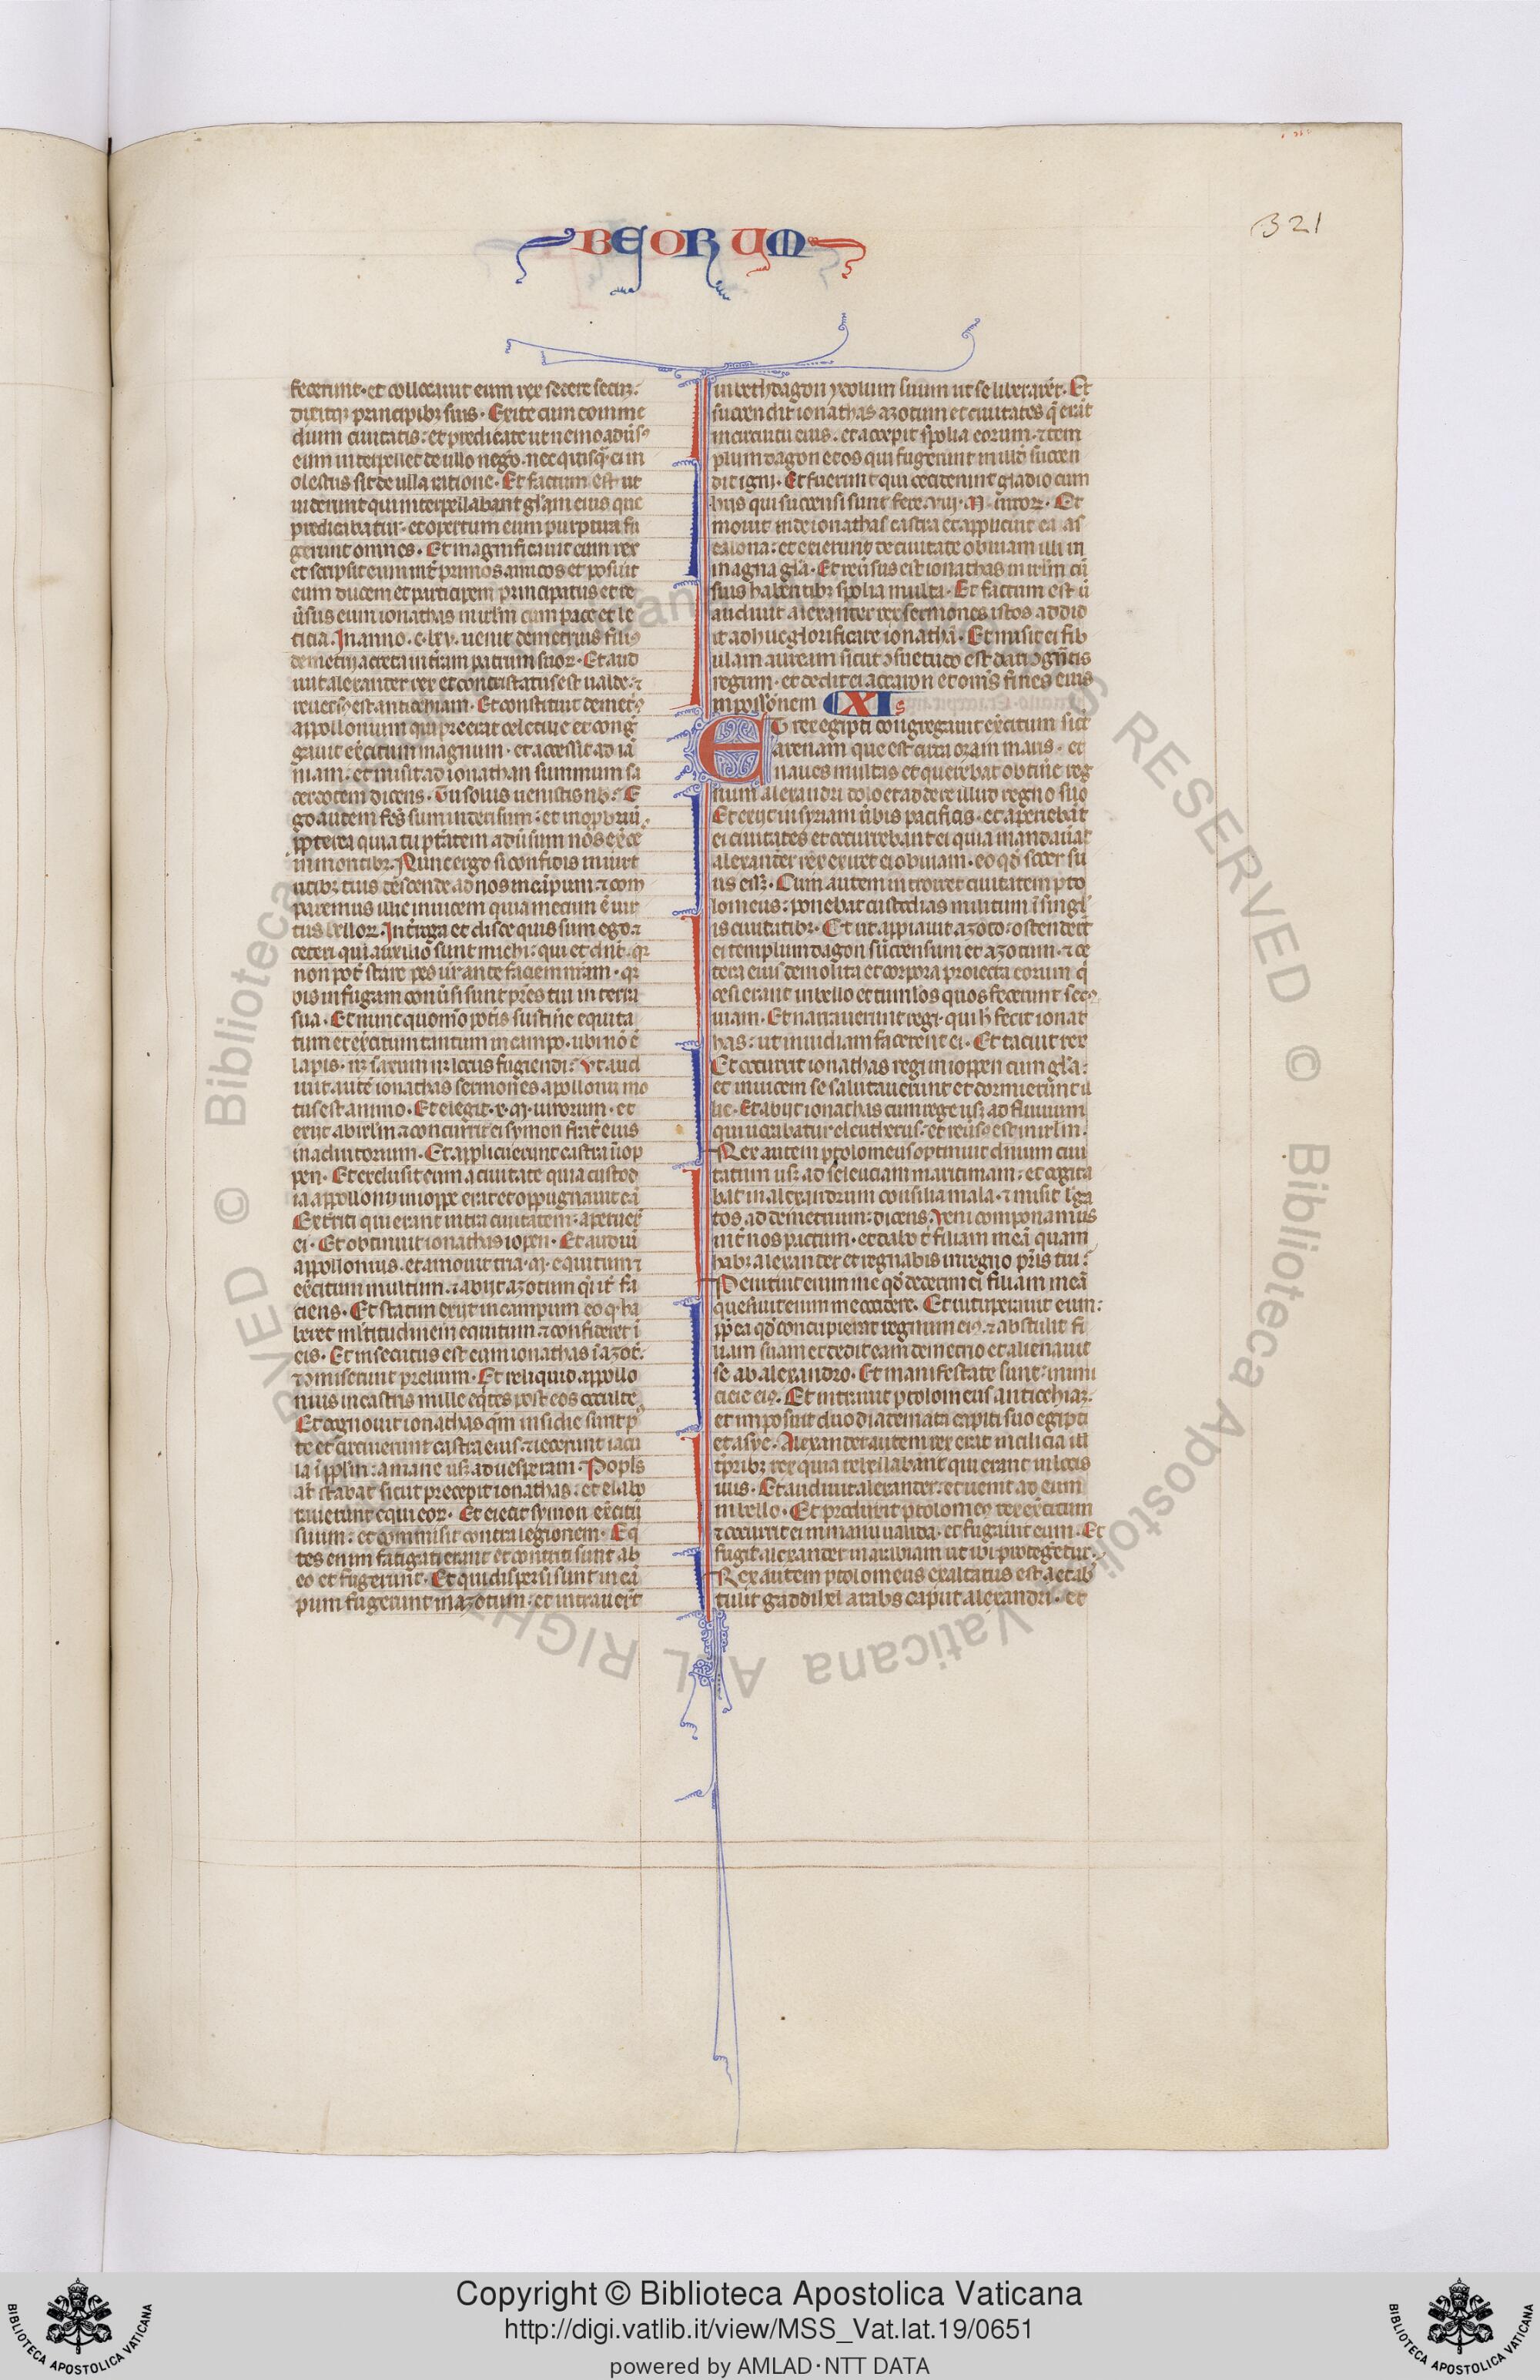 321
BEORUM
fecerunt· et collocauit eum rex sedere secum·
dixitqȝ principibȝ suis· Exite cum eo in me
dium ciuitatis: et predicate ut nemo adūsꝰ
eum interpellet de ullo nego· nec quisq̄ ei m
olestus sit de ulla ratione· Et factum est ut
uiderunt qui interpellabant glam eius que
predicabatur· et opertum eum purpura fu
gerunt omnes· Et magnificauit eum rex
et scripsit eum int̄ primos amicos et posuit
eum ducem et participem principatus et re
ūsus eum ionathas in irlm cum pace et le
ticia. In anno· c· lxv· uenit demetrius filiꝰ
demetrii a creta in t̄ram patrum suoꝝ· Et aud
iuit alexander rex et contristatus est ualde· ⁊
reuersꝰ est antiochiam· Et constituit demetꝰ
appollonium qui preerat celesirie et conḡ
gauit ex̄citum magnum· et accessit ad iā
niam· et misit ad ionathan summum sa
cerdotem dicens· Tu solus uenistis nb̄: E
go autem fc̄s sum in derisum: et in opbriū·
ppterea quia tu ptatem adūsum nos ex̄ce
in montibȝ. Nunc ergo si confidis in uirt
utibȝ tuis descende ad nos in cāpum· ⁊ com
paremus illic inuicem quia mecum ē uir
tus belloꝝ. Int̄roga et disce quis sum ego· ⁊
ceteri qui auxilio sunt michi: qui et dn̄t· qꝛ
non pot̄ stare pes ur̄ ante faciem nr̄am· qꝛ
bis in fugam conūsi sunt prēs tui in terra
sua· Et nunc quomō potis sustinē equita
tum et ex̄citum tantum in campo· ubi nō ē
lapis· nꝛ saxum nꝛ locus fugiendi: Vt aud
iuit autē ionathas sermones apollonii mo
tus est animo· Et elegit· x· m̄· uirorum· et
exiit ab irlm ⁊ concurrit ei symon frat̄ eius
in adiutorium· Et applicuerunt castra ī iop
pen· Et exclusit eum a ciuitate quia custod
ia appollonii in ioppe erat et oppugnauit eā
Ext̄riti qui erant intra ciuitatem· aperuer̄
ei· Et obtinuit ionathas iopen· Et audiuī
appollonius· et amouit tria· m̄· equitum ⁊
ex̄citum multum· ⁊ abiit azotum q̄ it̄ fa
ciens· Et statim exiit in campum eo q· ha
beret mltitudinem equitum ⁊ confideret ī
eis· Et insecutus est eum ionathas ī azot̄·
⁊ ꝯmiserunt prelium· Et reliquid appollo
nius in castris mille eq̄tes post eos occulte
Et cognouit ionathas qm̄ insidie sunt pꝰ
te et circuierunt castra eius· ⁊ iecerunt iacu
la ī pplm: a mane usȝ ad uesperam· Popls
at̄ stabat sicut precepit ionathas: et elabo
rauerunt equi eoꝝ· Et eiecit symon ex̄citū
suum: et commisit contra legionem· Eq
tes enim fatigati erant et contriti sunt ab
eo et fugerunt· Et qui dispersi sunt in cā
pum fugerunt in azotum: et intrauert̄
in bethdagon ydolum suum ut se liberarēt· Et
succendit ionathas azotum et ciuitates q̄ erāt
in circuitu eius· et accepit spolia eorum· ⁊ tem
plum dagon et os qui fugerunt in illd succen
dit igni· Et fuerunt qui ceciderunt gladio cum
hiis qui succensi sunt fere· viij· m̄· uiroꝝ· Et
mouit inde ionathas castra et applicuit ea as
calona: et exierunt de ciuitate obuiam illi in
magna glā· Et reūsus est ionathas in irlm cū
suis habentibȝ spolia multa· Et factum est ū
audiuit alexander rex sermones istos addid
it adhuc glorificare ionathā· Et misit ei fib
ulam auream sicut ꝯsuetudo est dari ꝯgn̄tis
regum· et dedit ei accaron et om̄s fines eius
in possōnem CXI
ET rex egipti congregauit ex̄citum sic̄
arenam que est circa oram maris· et
naues multas et querebat obtinē reg
num alexandri dolo et addere illud regno suo
Et exiit in syriam ūbis pacificis· et aperiebāt
ei ciuitates et occurrebant ei quia mandauāt
alexander rex exire ei obuiam· eo qd̄ socer su
us essȝ· Cum autem introiret ciuitatem pto
lomeus: ponebat custodias militum ī singl
is ciuitatibȝ· Et ut appiauit azoto: ostender̄t
ei templum dagon succensum et azotum· ⁊ ce
tera eiusdem olita et corpora proiecta eorum q̄
cesi erant in bello et tumlos quos fecerunt secꝰ
uiam· Et narrauerunt regi· qui h̄ fecit ionat
has: ut inuidiam facerent ei· Et tacuit rex
Et occurrit ionathas regi in ioppen cum glā:
et inuicem se salutauerunt et dormierūnt il
lic· Et abiit ionathas cum rege usȝ ad fluuium
qui uocabatur eleutherus: et reūsꝰ est in irlm·
Rex autem ptolomeus optinuit dnium ciui
tatum usȝ ad seleuciam maritimam: et cogita
bat in alexandrum consilia mala· ⁊ misit lega
tos ad demetrium: dicens. Veni componamus
int̄ nos pactum· et dabo t̄ filiam meā quam
habȝ alexander et regnabis in regno pr̄is tui:
Penituit eum me qd̄ dederim ei filiam meā
quesiuit enim me occidere. Et uituperauit eum:
pp̄ea qd̄ concupierat regnum eiꝰ· ⁊ abstulit fi
liam suam et dedit eam demetrio et alienauit
se ab alexandro· Et manifestate sunt inimi
cicie eiꝰ. Et intrauit ptolomeus antiochiaȝ·
et imposuit duo diademata capiti suo egipti
et asye· Alexander autem rex erat in cilicia ill
t̄pribȝ rex quia rebellabant qui erant in locis
illis· Et audiuit alexander: et uenit ad eum
in bello· Et produxit ptolomeꝰ rex ex̄citum
⁊ occurrit ei in manu ualida· et fugauit eum· Et
fugit alexander in arabiam ut ibi protegetur·
Rex autem ptolomeus exaltatus est· a et ab
tulit gaddihel arabs caput alexandri· et
Copyright © Biblioteca Apostolica Vaticana
http://digi.vatlib.it/view/MSS_Vat.lat.19/0651
powered by AMLAD·NTT DATA